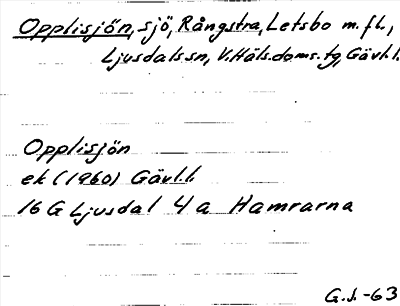 Opplisjön, sjö, Rångstra, Letsbo m.fl.,
Ljusdals sn, V.Häls.doms.tg, Gävl.l.
Opplisjön
ek (1960) Gävl.l.
16 G Ljusdal 4 a Hamrarna
G.J.-63